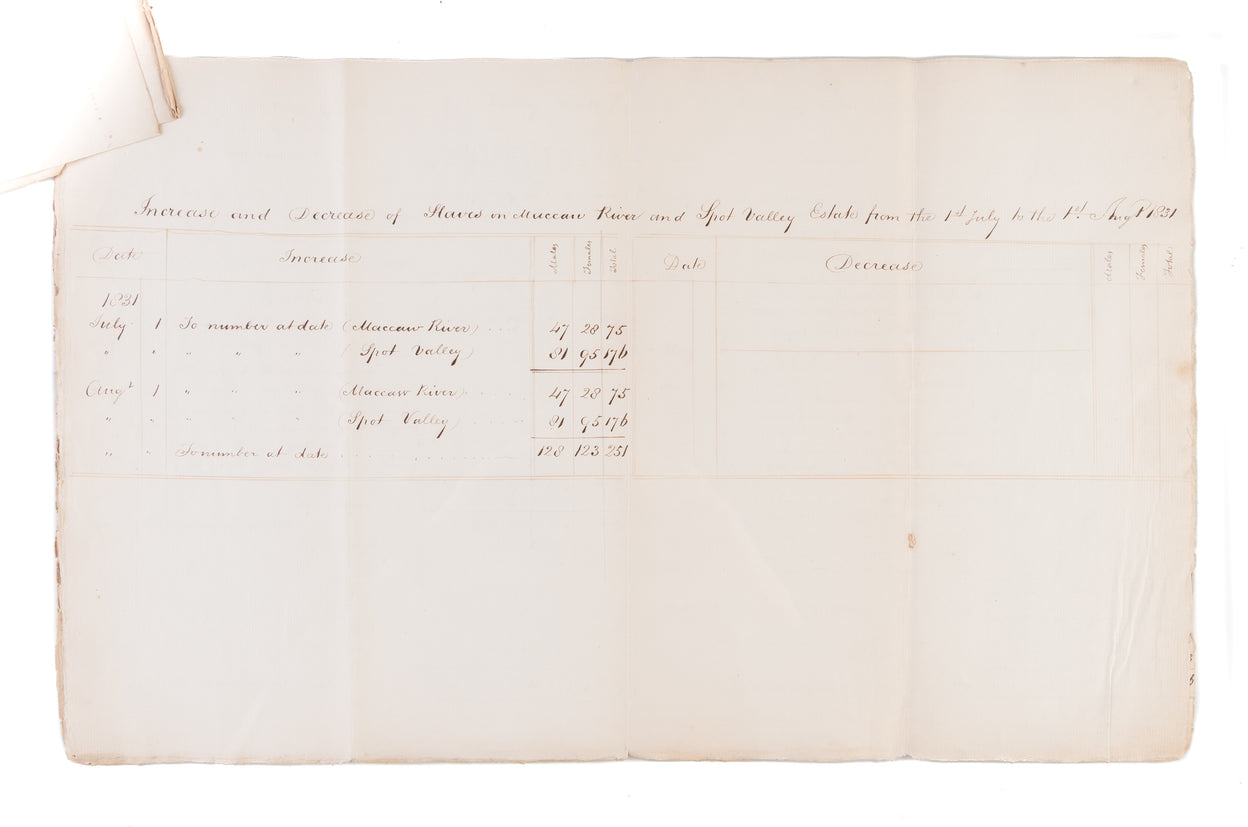 Increase and Decrease of Slaves on Maccaw River and Spot Valley Estate from the 1st July to the 1st Augt 1831
Date Increase Males Females Total Date Decrease Males Females Total
1831
July 1 To number at date (Maccaw River) 47 28 75
" " " " " (Spot Valley) 81 95 176
Augt 1 " " " (Maccaw River) 47 28 75
" " " " (Spot Valley) 81 95 176
" " To number at date 128 123 251